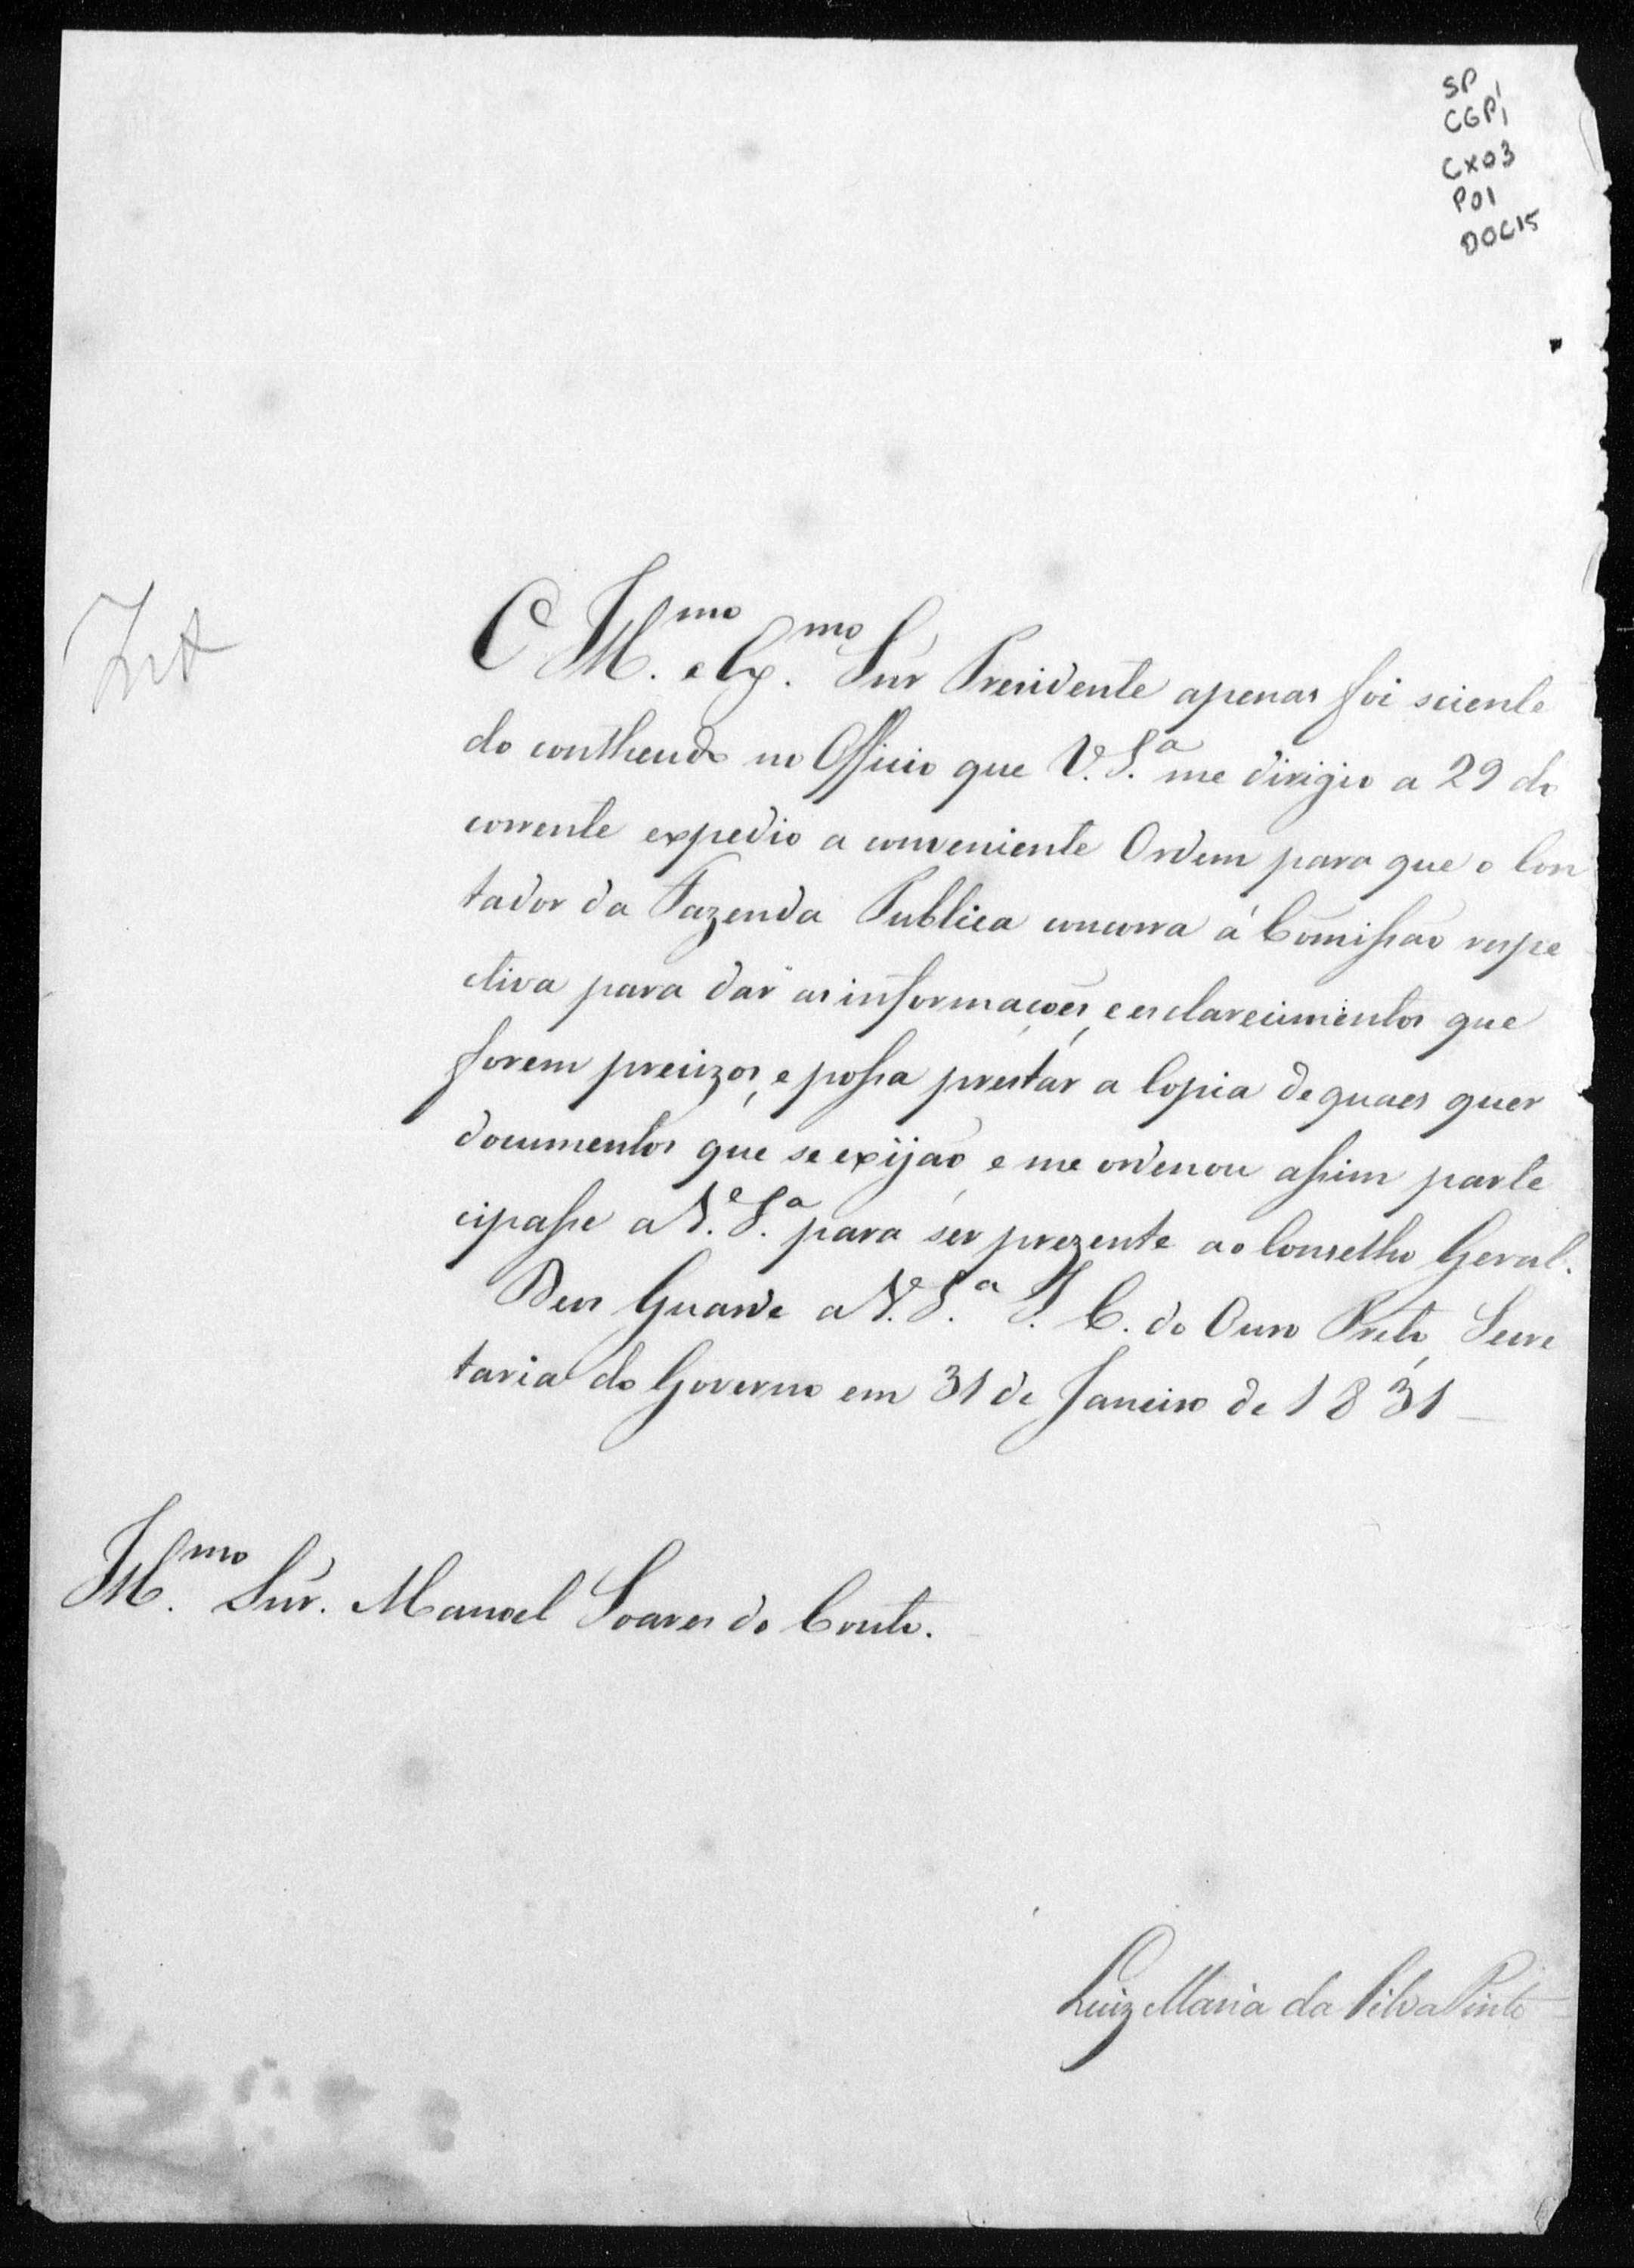 SP
CGP1
CX03
P01
DOC15
O Ill.mo e Ex.mo Snr Presidente apenas foi sciente
do contheudo no Officio que V. S.a me dirigio a 29 do
corrente expedio a conveniente Ordem para que o Con
tador da Fazenda Publica concorra á Comissão respe
ctiva para dar as informações, e esclarecimentos que
forem precizos, e possa prestar a Copia de quaes quer
documentos que se exijão, e me ordenou assim parte
cipasse a V. S.a para ser prezente ao Conselho Geral.
Deos Guarde a V. S.a I. C. do Ouro Preto, Secre
taria do Governo em 31 de Janeiro de 1831
Ill.mo Snr. Manoel Soares do Couto.
Luiz Maria da Silva Pinto